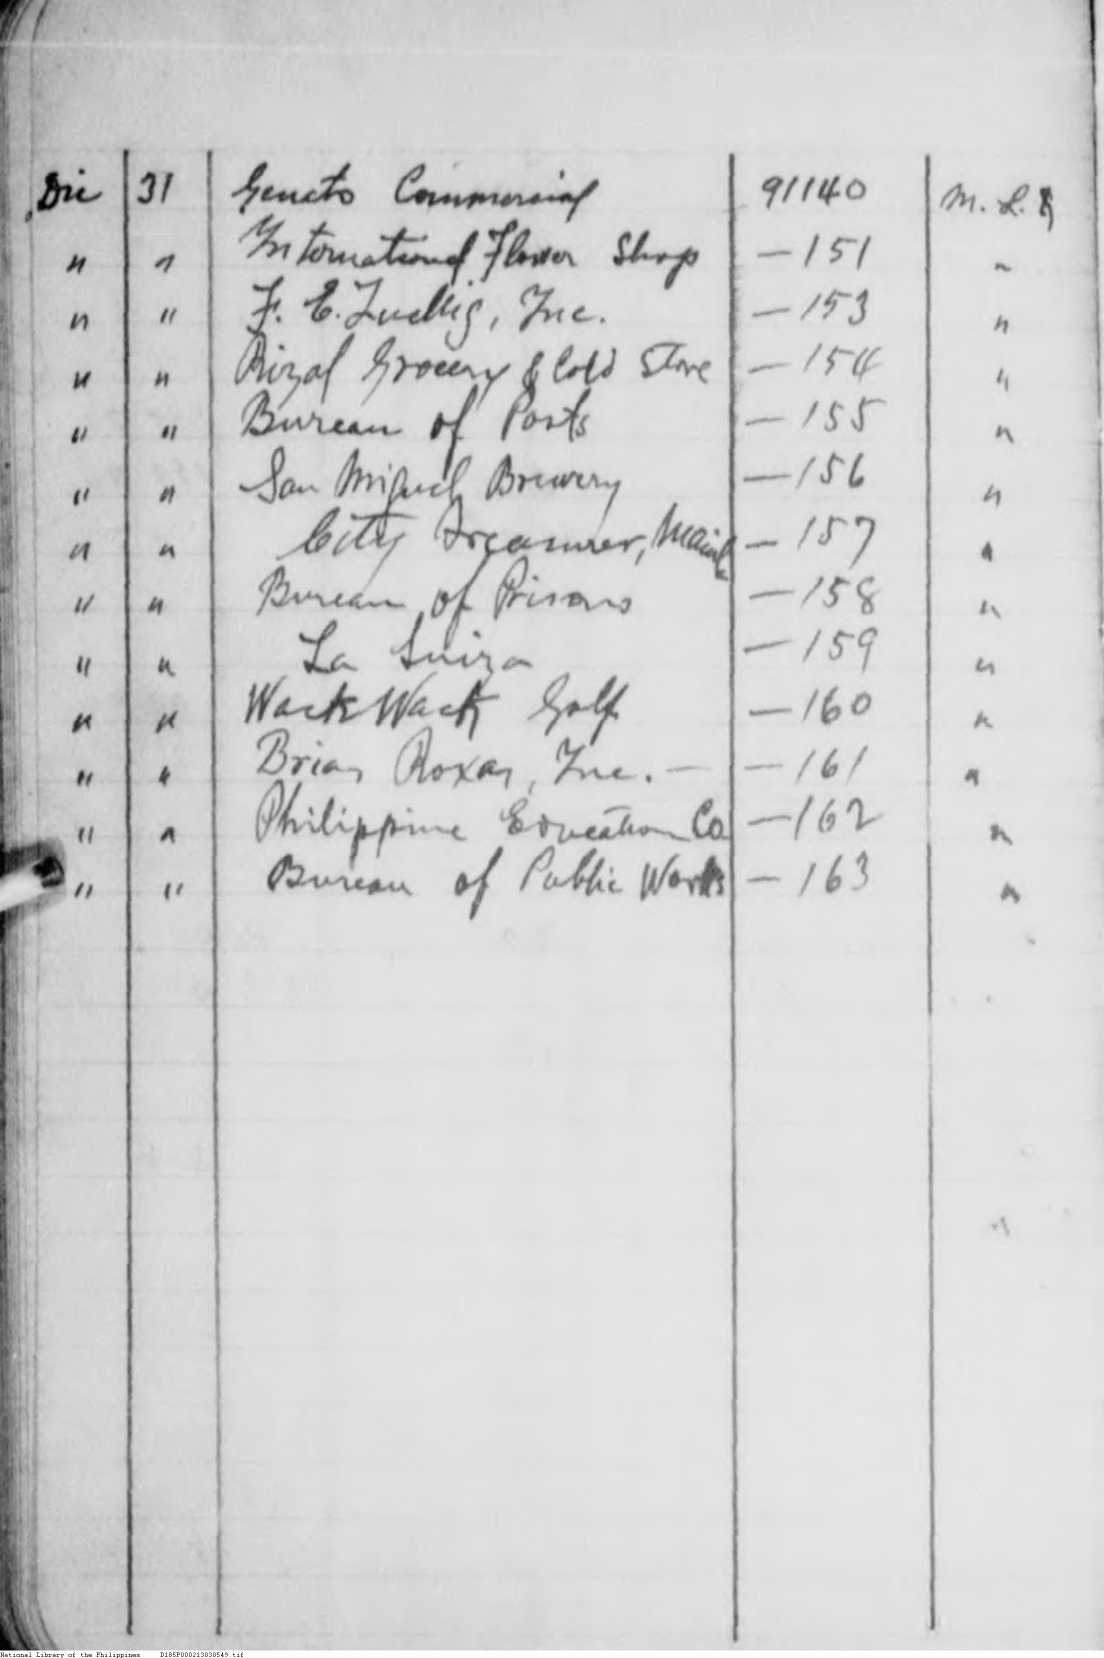 Dic 31 Genato Commercial 91140 M. L. Q
" " International Flower Shop — 151 "
" " F. E. Zuellig, Inc. — 153 "
" " Rizal Grocery & Cold Store — 154 "
" " Bureau of Posts — 155 "
" " San Miguel Brewery — 156 "
" " City Treasurer, Manila — 157 "
" " Bureau of Prisons — 158 "
" " La Suiza — 159 "
" " Wack Wack Golf — 160 "
" " Brias Roxas, Inc. — — 161 "
" " Philippine Education Co — 162 "
" " Bureau of Public Works — 163 "
National Library of the Philippines D185P000213030549.tif